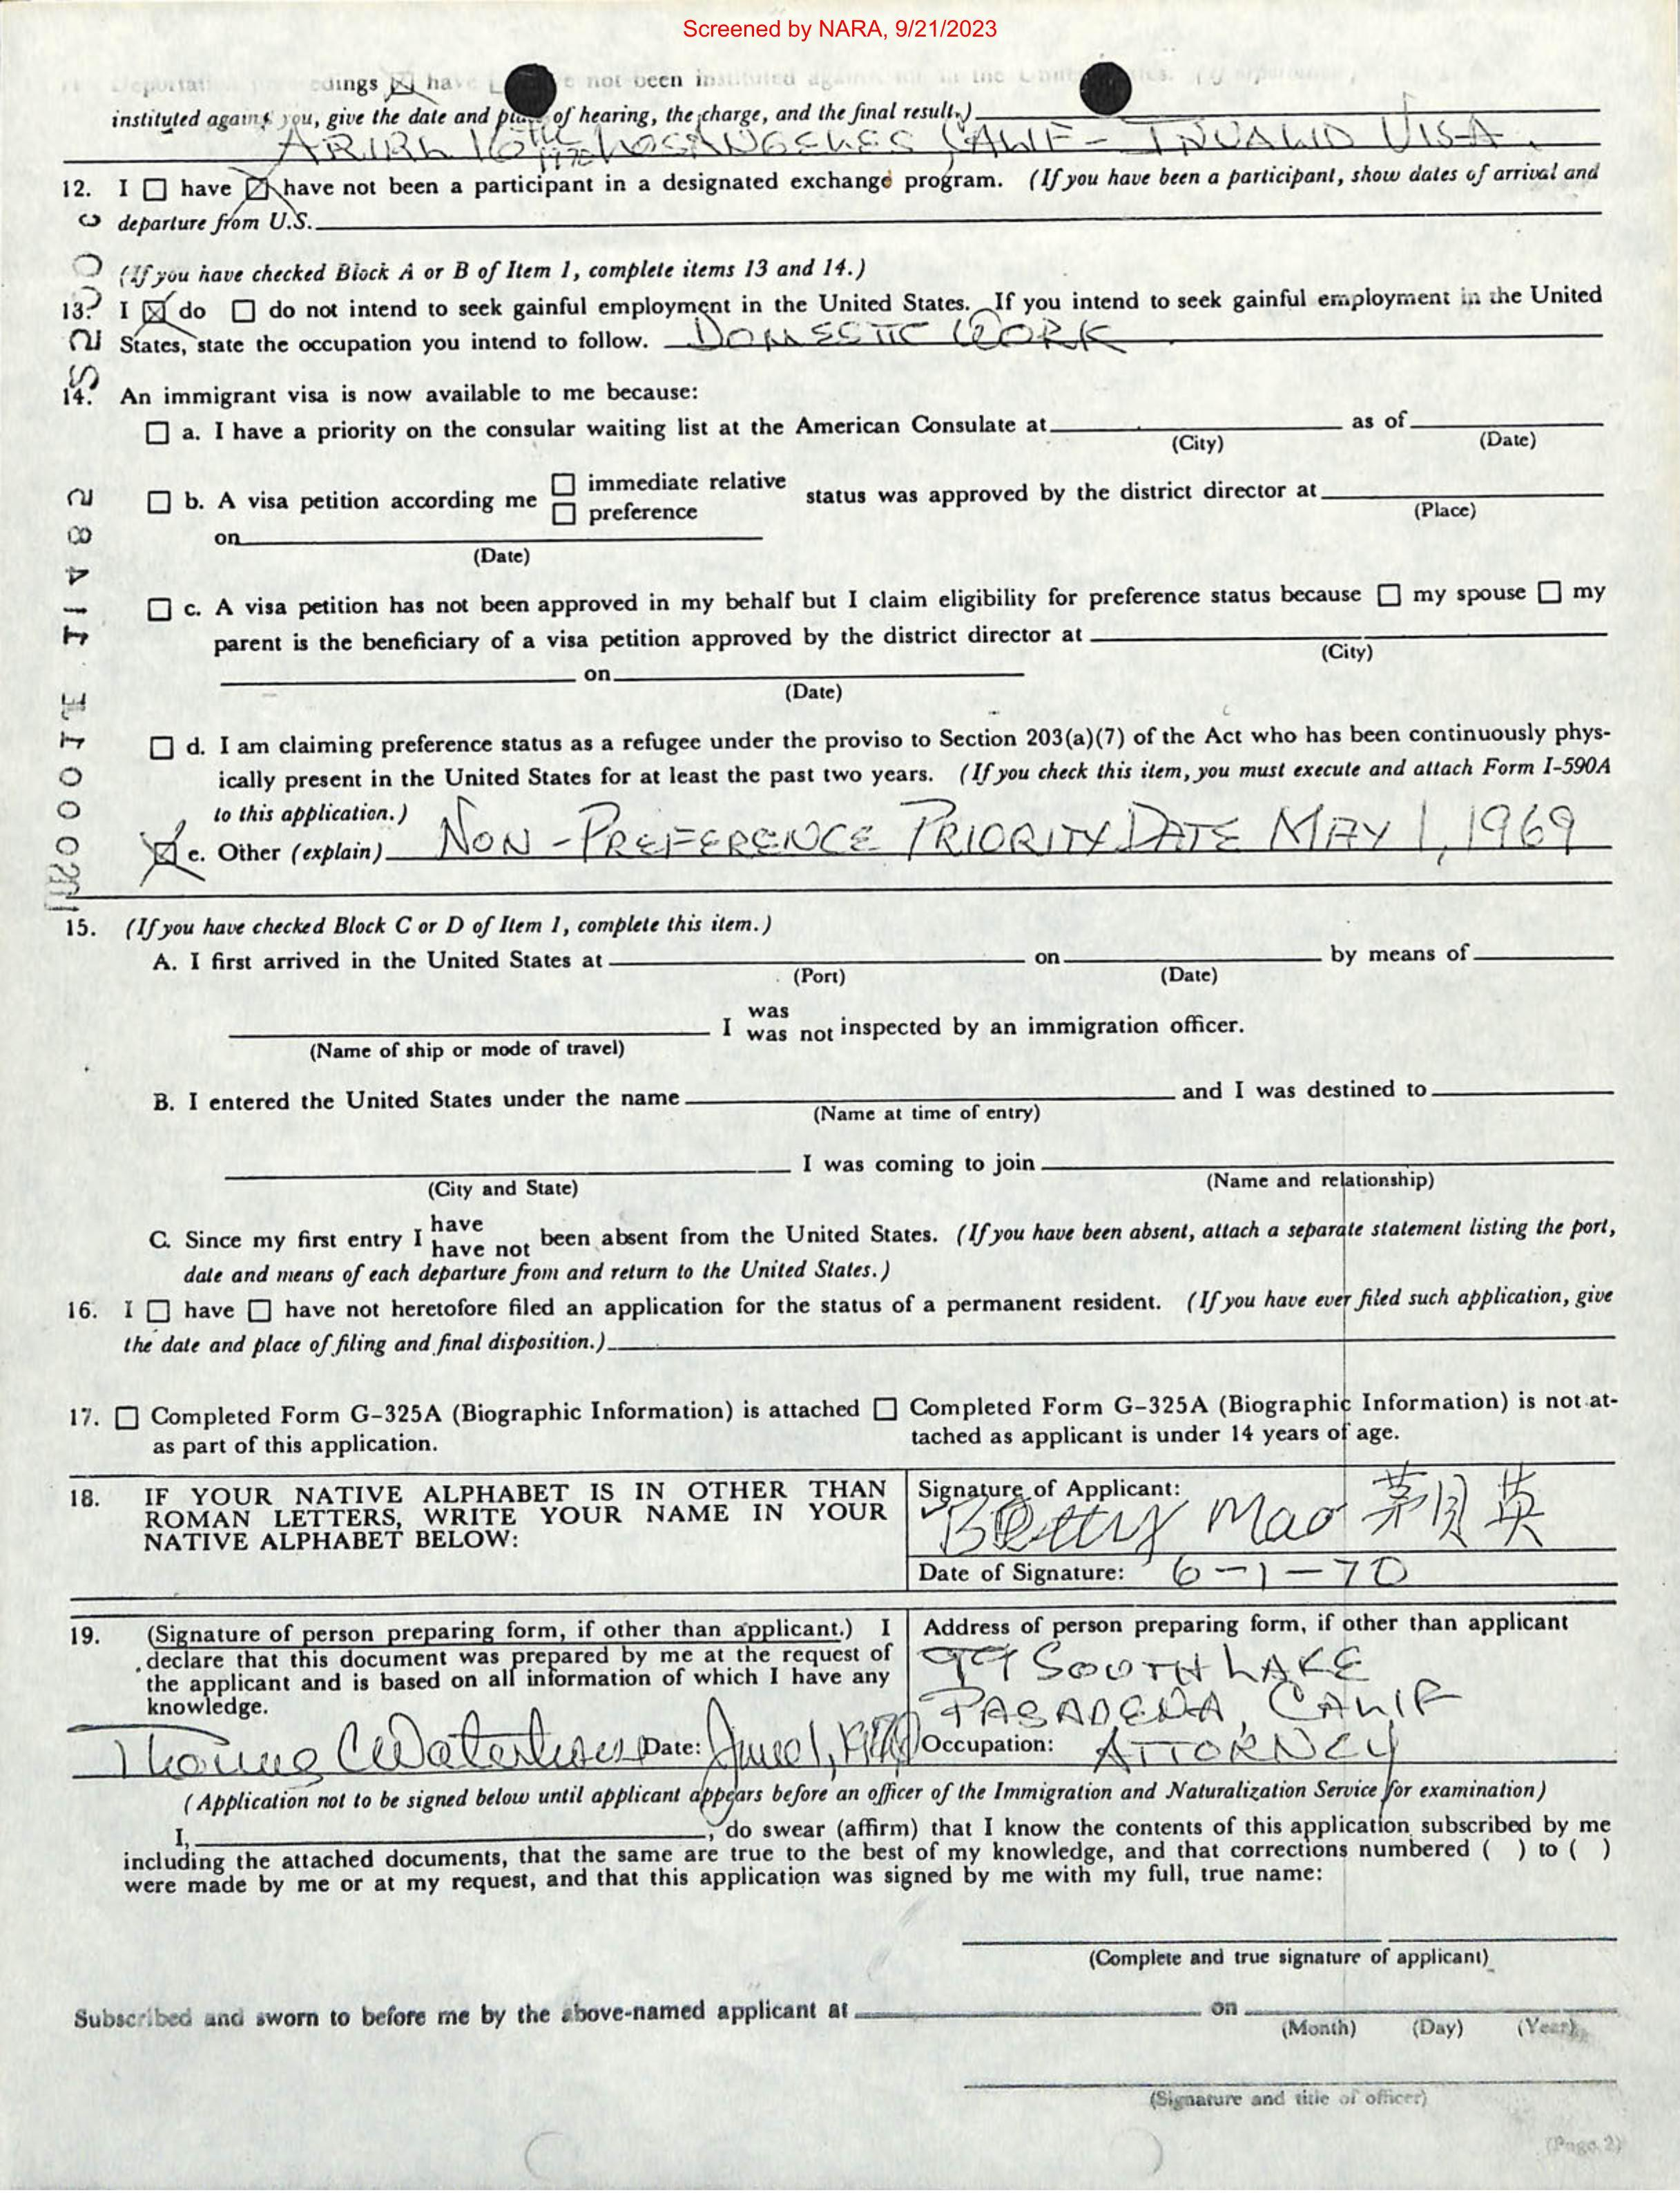 Screened by NARA, 9/21/2023
Deportat edings ☒ have not been instituted
instituted against you, give the date and place of hearing, the charge, and the final result.)
APRIL 16th 1970 LOS ANGELES CALIF - INVALID VISA.
12. I ☐ have ☒ have not been a participant in a designated exchange program. (If you have been a participant, show dates of arrival and
departure from U.S.
(If you have checked Block A or B of Item 1, complete items 13 and 14.)
13. I ☒ do ☐ do not intend to seek gainful employment in the United States. If you intend to seek gainful employment in the United
States, state the occupation you intend to follow. DOMESTIC WORK
14. An immigrant visa is now available to me because:
☐ a. I have a priority on the consular waiting list at the American Consulate at as of
(City) (Date)
☐ b. A visa petition according me ☐ immediate relative ☐ preference status was approved by the district director at
(Place)
on
(Date)
☐ c. A visa petition has not been approved in my behalf but I claim eligibility for preference status because ☐ my spouse ☐ my
parent is the beneficiary of a visa petition approved by the district director at
(City)
on
(Date)
☐ d. I am claiming preference status as a refugee under the proviso to Section 203(a)(7) of the Act who has been continuously phys-
ically present in the United States for at least the past two years. (If you check this item, you must execute and attach Form I-590A
to this application.)
☒ e. Other (explain) NON-PREFERENCE PRIORITY DATE MAY 1, 1969
15. (If you have checked Block C or D of Item 1, complete this item.)
A. I first arrived in the United States at on by means of
(Port) (Date)
I was was not inspected by an immigration officer.
(Name of ship or mode of travel)
B. I entered the United States under the name and I was destined to
(Name at time of entry)
I was coming to join
(City and State) (Name and relationship)
C. Since my first entry I have have not been absent from the United States. (If you have been absent, attach a separate statement listing the port,
date and means of each departure from and return to the United States.)
16. I ☐ have ☐ have not heretofore filed an application for the status of a permanent resident. (If you have ever filed such application, give
the date and place of filing and final disposition.)
17. ☐ Completed Form G-325A (Biographic Information) is attached ☐ Completed Form G-325A (Biographic Information) is not at-
as part of this application. tached as applicant is under 14 years of age.
18. IF YOUR NATIVE ALPHABET IS IN OTHER THAN
ROMAN LETTERS, WRITE YOUR NAME IN YOUR
NATIVE ALPHABET BELOW:
Signature of Applicant:
Betty Mao 茅月英
Date of Signature: 6-1-70
19. (Signature of person preparing form, if other than applicant.) I
declare that this document was prepared by me at the request of
the applicant and is based on all information of which I have any
knowledge.
Date: June 1, 1970
Address of person preparing form, if other than applicant
99 SOUTH LAKE
PASADENA, CALIF
Occupation: ATTORNEY
(Application not to be signed below until applicant appears before an officer of the Immigration and Naturalization Service for examination)
I, , do swear (affirm) that I know the contents of this application subscribed by me
including the attached documents, that the same are true to the best of my knowledge, and that corrections numbered ( ) to ( )
were made by me or at my request, and that this application was signed by me with my full, true name:
(Complete and true signature of applicant)
Subscribed and sworn to before me by the above-named applicant at on
(Month) (Day) (Year)
(Signature and title of officer)
(Page 2)